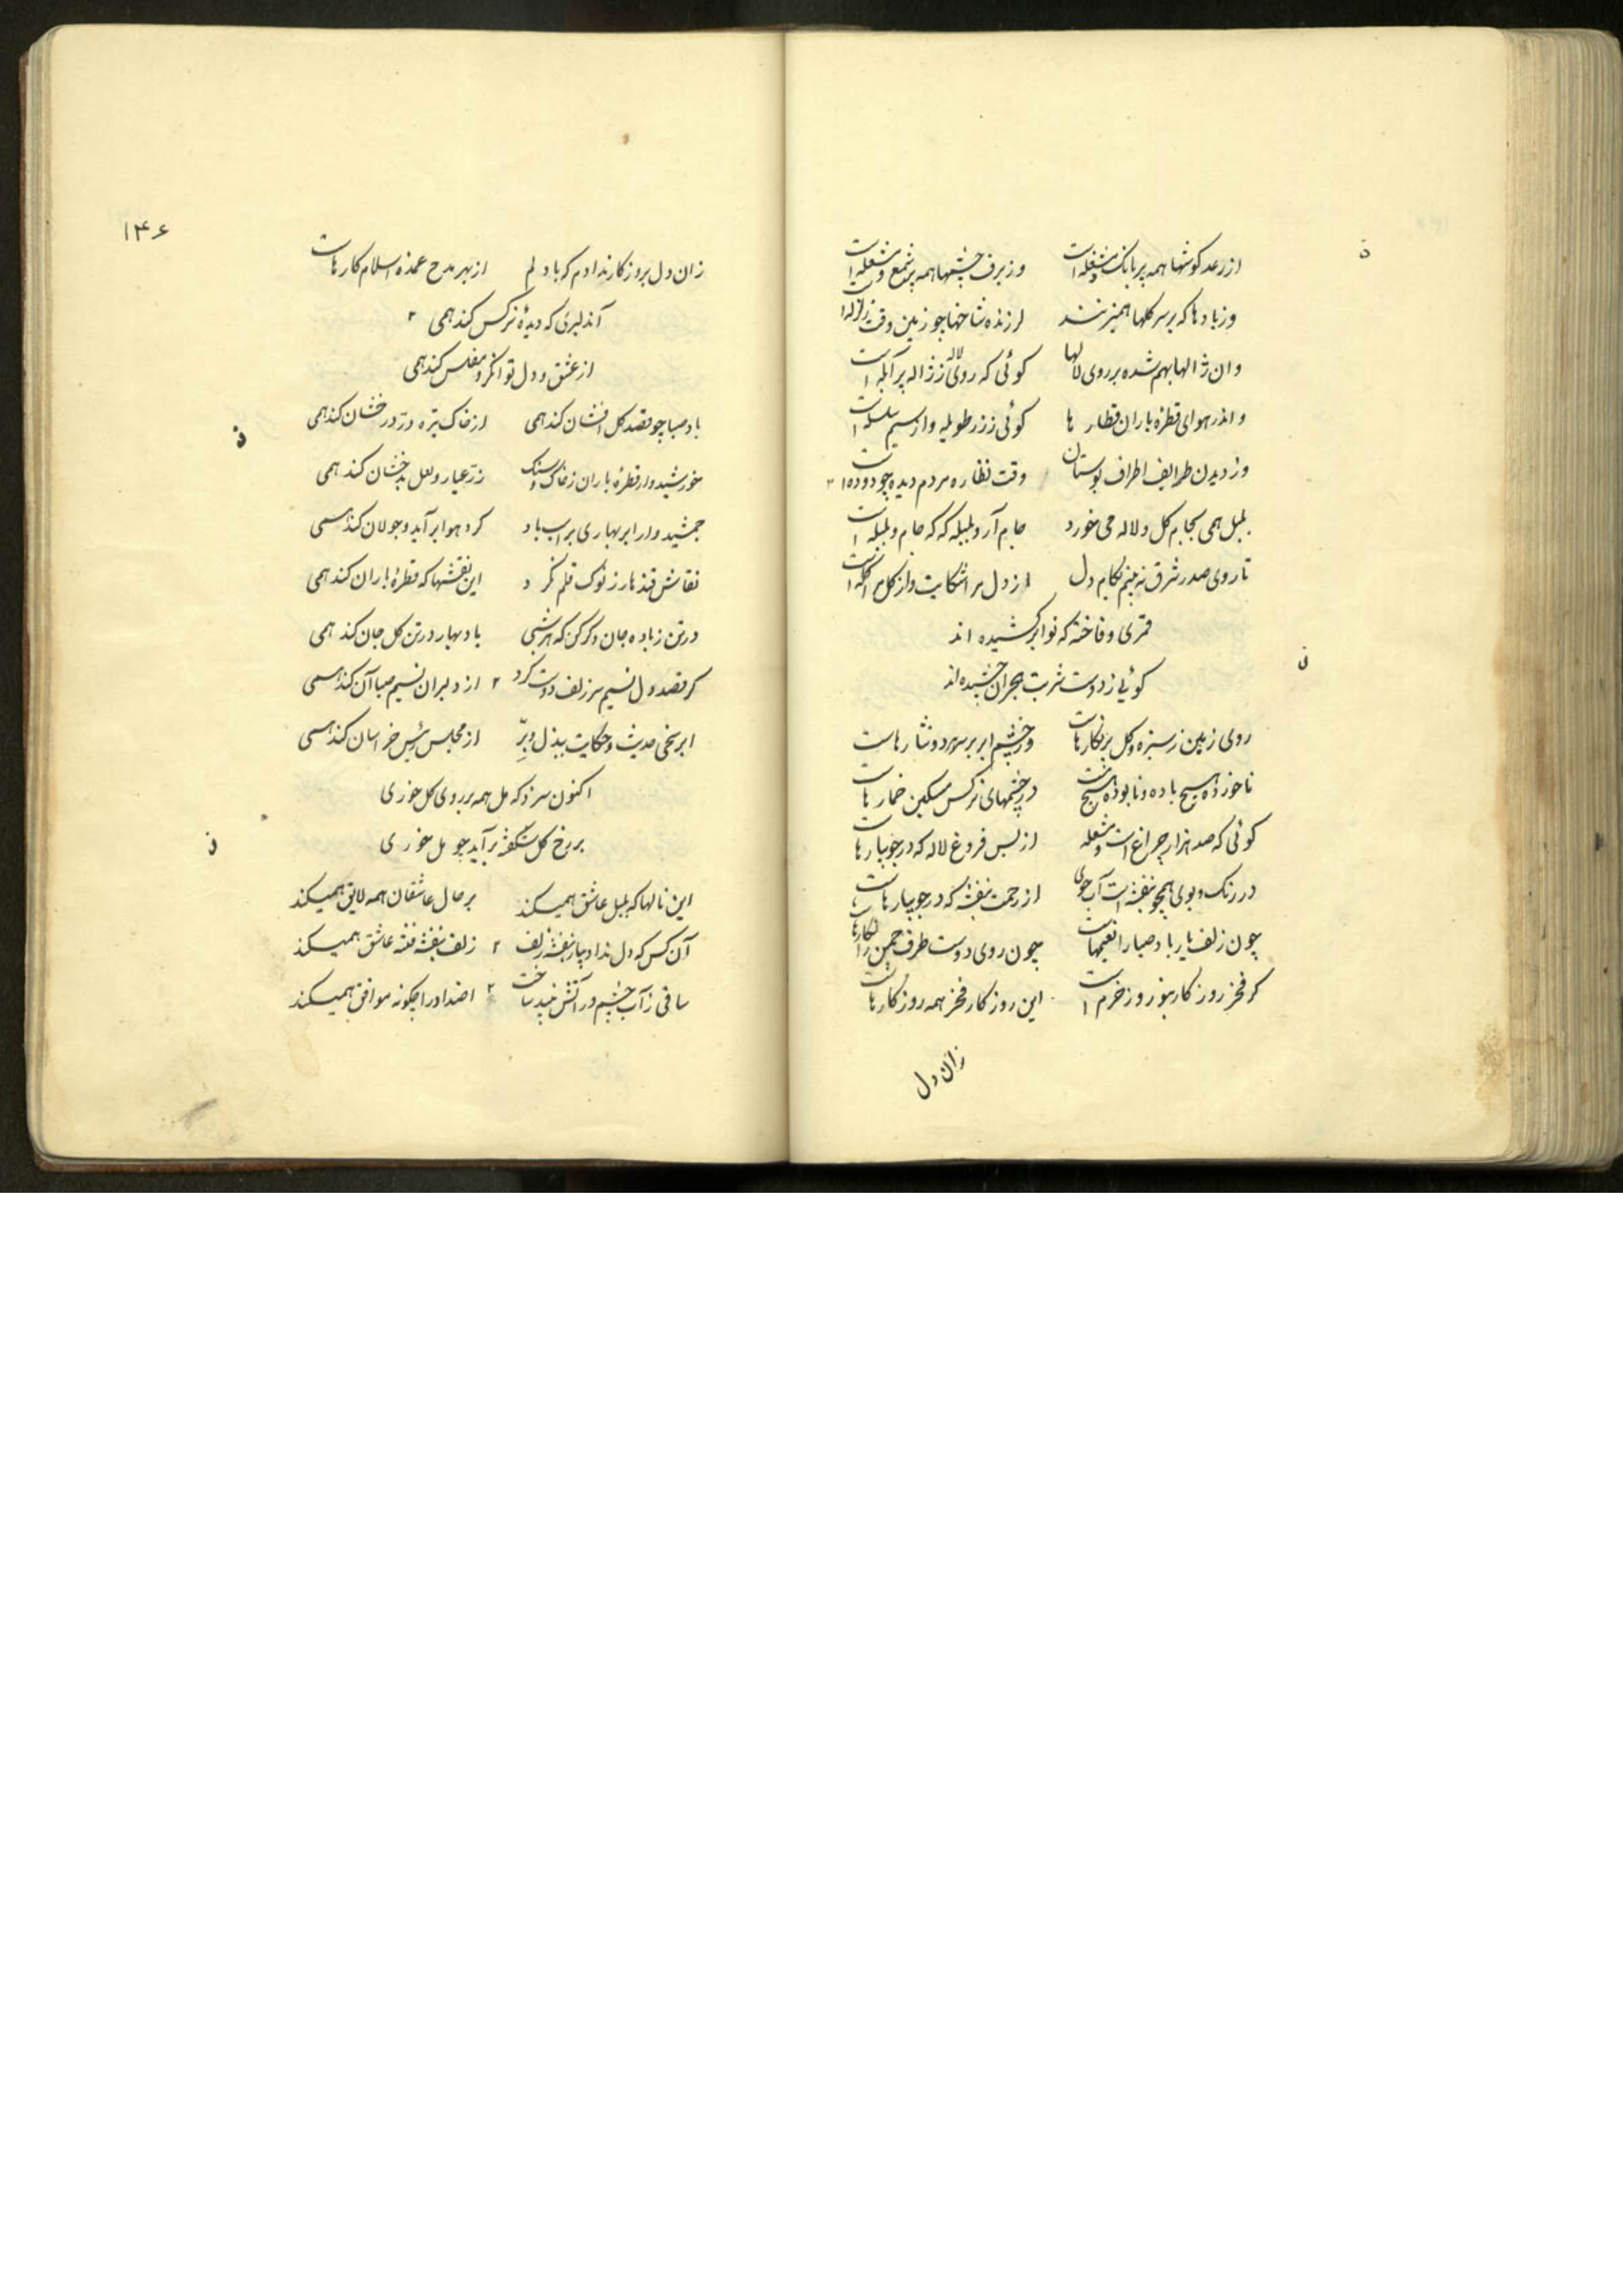 از رعد کوشها همه پر بانک و مشغله است وز برف چشمها همه پر شمع و مشعله است
وز بادها که بر سر کلها همیزنند لرزنده شاخها چو زمین وقت زلزله است
وان ژالها بهم شده بر روی لالها کوئی که روی لاله ز ژاله پر آبله است
و اندر هوای قطره باران قطارها کوئی ز زر طویله و از سیم سلسله است
وز دیدن طرایف اطراف بوستان وقت نظاره مردم دیده چو دوده است ۲
بلبل همی بجام کل و لاله می خورد جام آر و بلبله که که جام و بلبله است
تا روی صدر شرق نه بینم بکام دل از دل مرا شکایت و از کل مرا کله است
قمری و فاخته که نوا برکشیده اند
کوئی ز دوست شربت هجران چشیده اند
روی زمین ز سبزه و کل پر نکارهاست وز چشم ابر بر سر هر دو نثارهاست
ناخورده هیچ باده و نابوده هیچ در چشمهای نرکس مسکین خمارهاست
کوئی که صد هزار چراغ است و مشعله از بس فروغ لاله که در جویبارهاست
در رنک و بوی همچو بنفشه است آب جوی از زحمت بنفشه که در جویبارهاست
چون زلف یار باد صبا را نعیمهاست چون روی دوست طرف چمن را نکارهاست
کر فخر روزکار بنوروز خرم است این روزکار فخر همه روزکارهاست
زان دل
۱۴۶
زان دل بروزکار ندادم که با دلم از بهر مدح عمده اسلام کارهاست
آن دلبری که دیدهٔ نرکس کند همی ۲
از عشق و دل توانکر و مفلس کند همی
باد صبا چو قصد کل افشان کند همی از خاک تیره درّ درخشان کند همی
خورشیدوار قطرهٔ باران ز خاک و سنک زرّ عیار و لعل بدخشان کند همی
جمشیدوار ابر بهاری بر اسب باد کرد هوا برآید و جولان کند همی
نقاش قندهار ز نوک قلم نکرد این نقشها که قطرهٔ باران کند همی
در تن ز باده جان دکر کن که هر شبی باد بهار در تن کل جان کند همی
کر قصد دل نسیم سر زلف دوست کرد ۲ از دلبران نسیم صبا آن کند همی
ابر سخی حدیث و حکایت ببذل و برّ از مجلس رئیس خراسان کند همی
اکنون سزد که مل همه بر روی کل خوری
بر رخ کل شکفته برآید چو مل خوری
این نالها که بلبل عاشق همیکند بر حال عاشقان همه لایق همیکند
آن کس که دل نداد بیار بنفشه زلف ۲ زلف بنفشه فتنه عاشق همیکند
ساقی ز آب چشم در آتش نبید ساخت ۲ اضداد را چکونه موافق همیکند